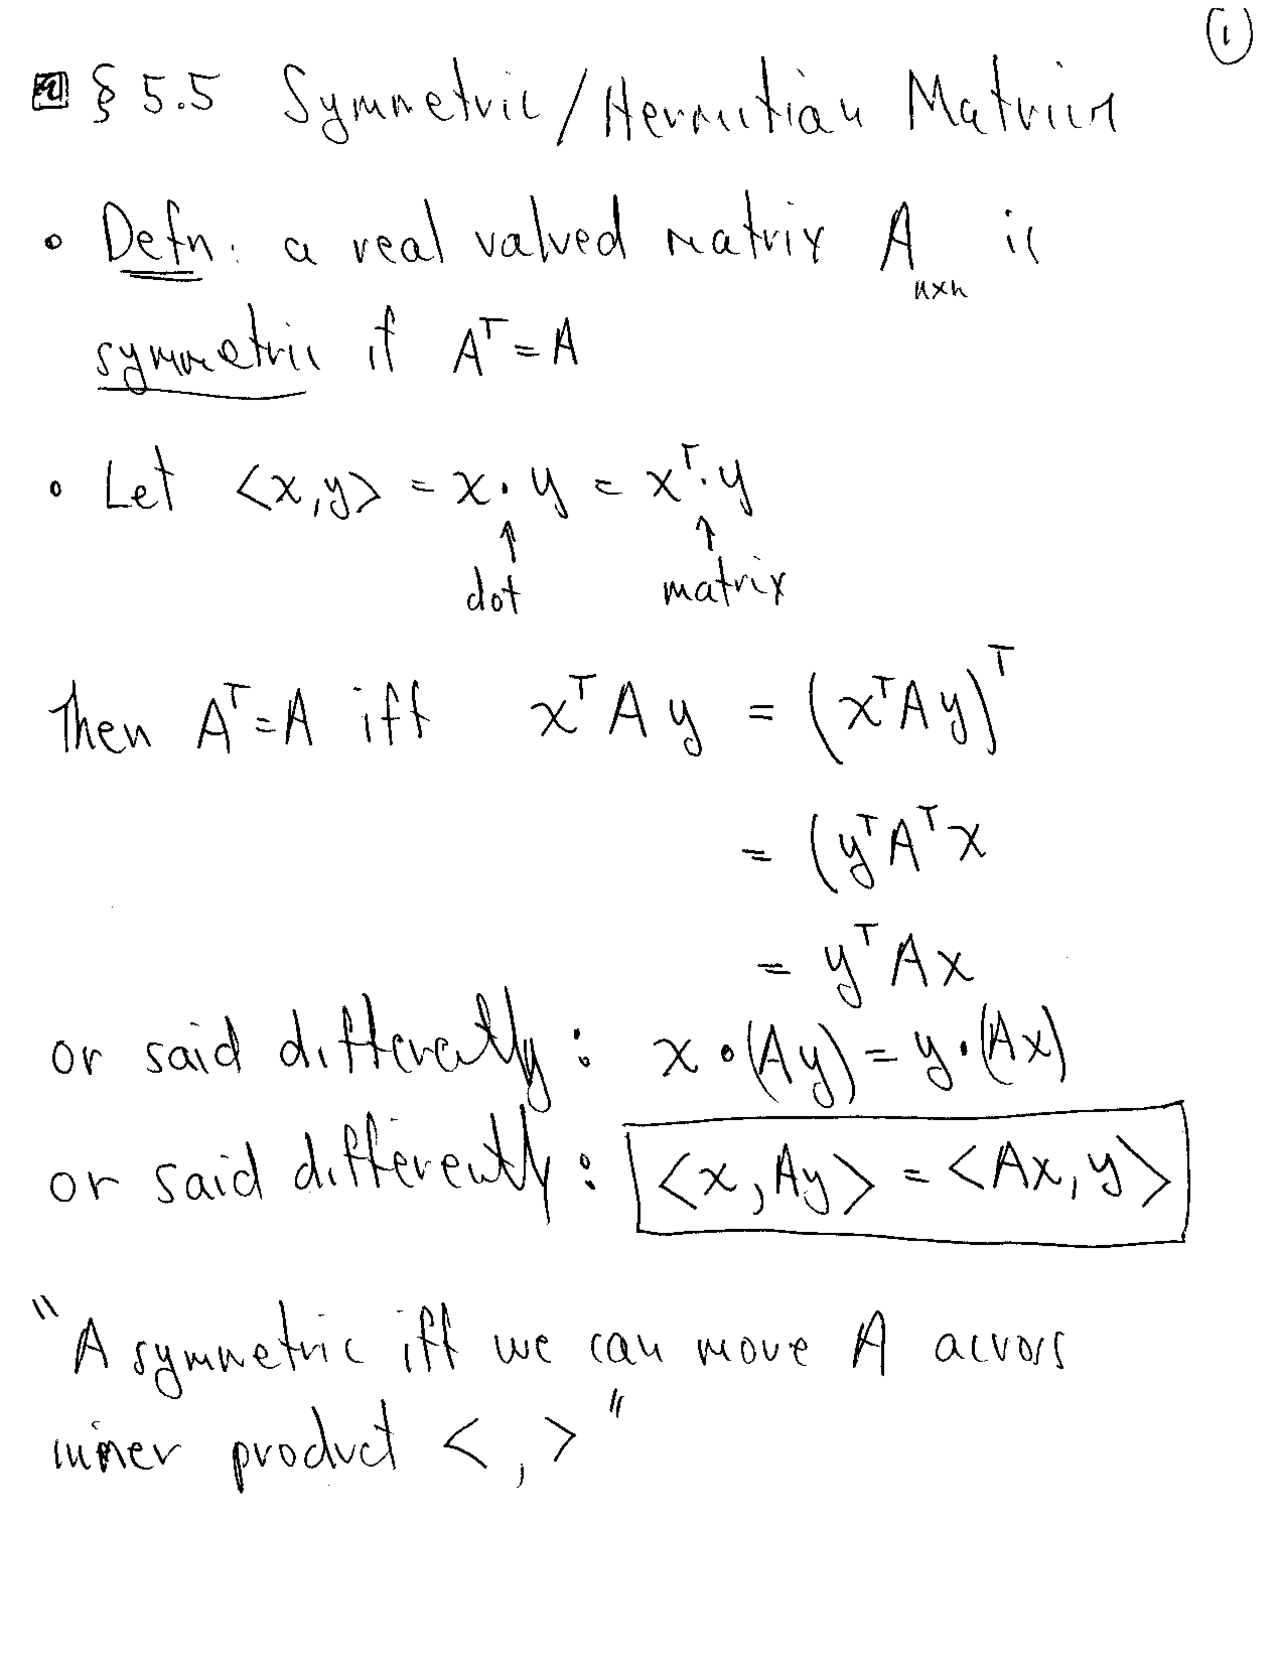 ①
§ 5.5 Symmetric/Hermitian Matrices
• Defn: a real valued matrix A_{n×n} is
symmetric if Aᵀ = A
• Let <x,y> = x • y = xᵀ · y
↑ ↑
dot matrix
Then Aᵀ = A iff xᵀ A y = (xᵀ A y)ᵀ
= (yᵀ Aᵀ x
= yᵀ A x
or said differently: x • (Ay) = y • (Ax)
or said differently: <x, Ay> = <Ax, y>
"A symmetric iff we can move A across
inner product < , >"